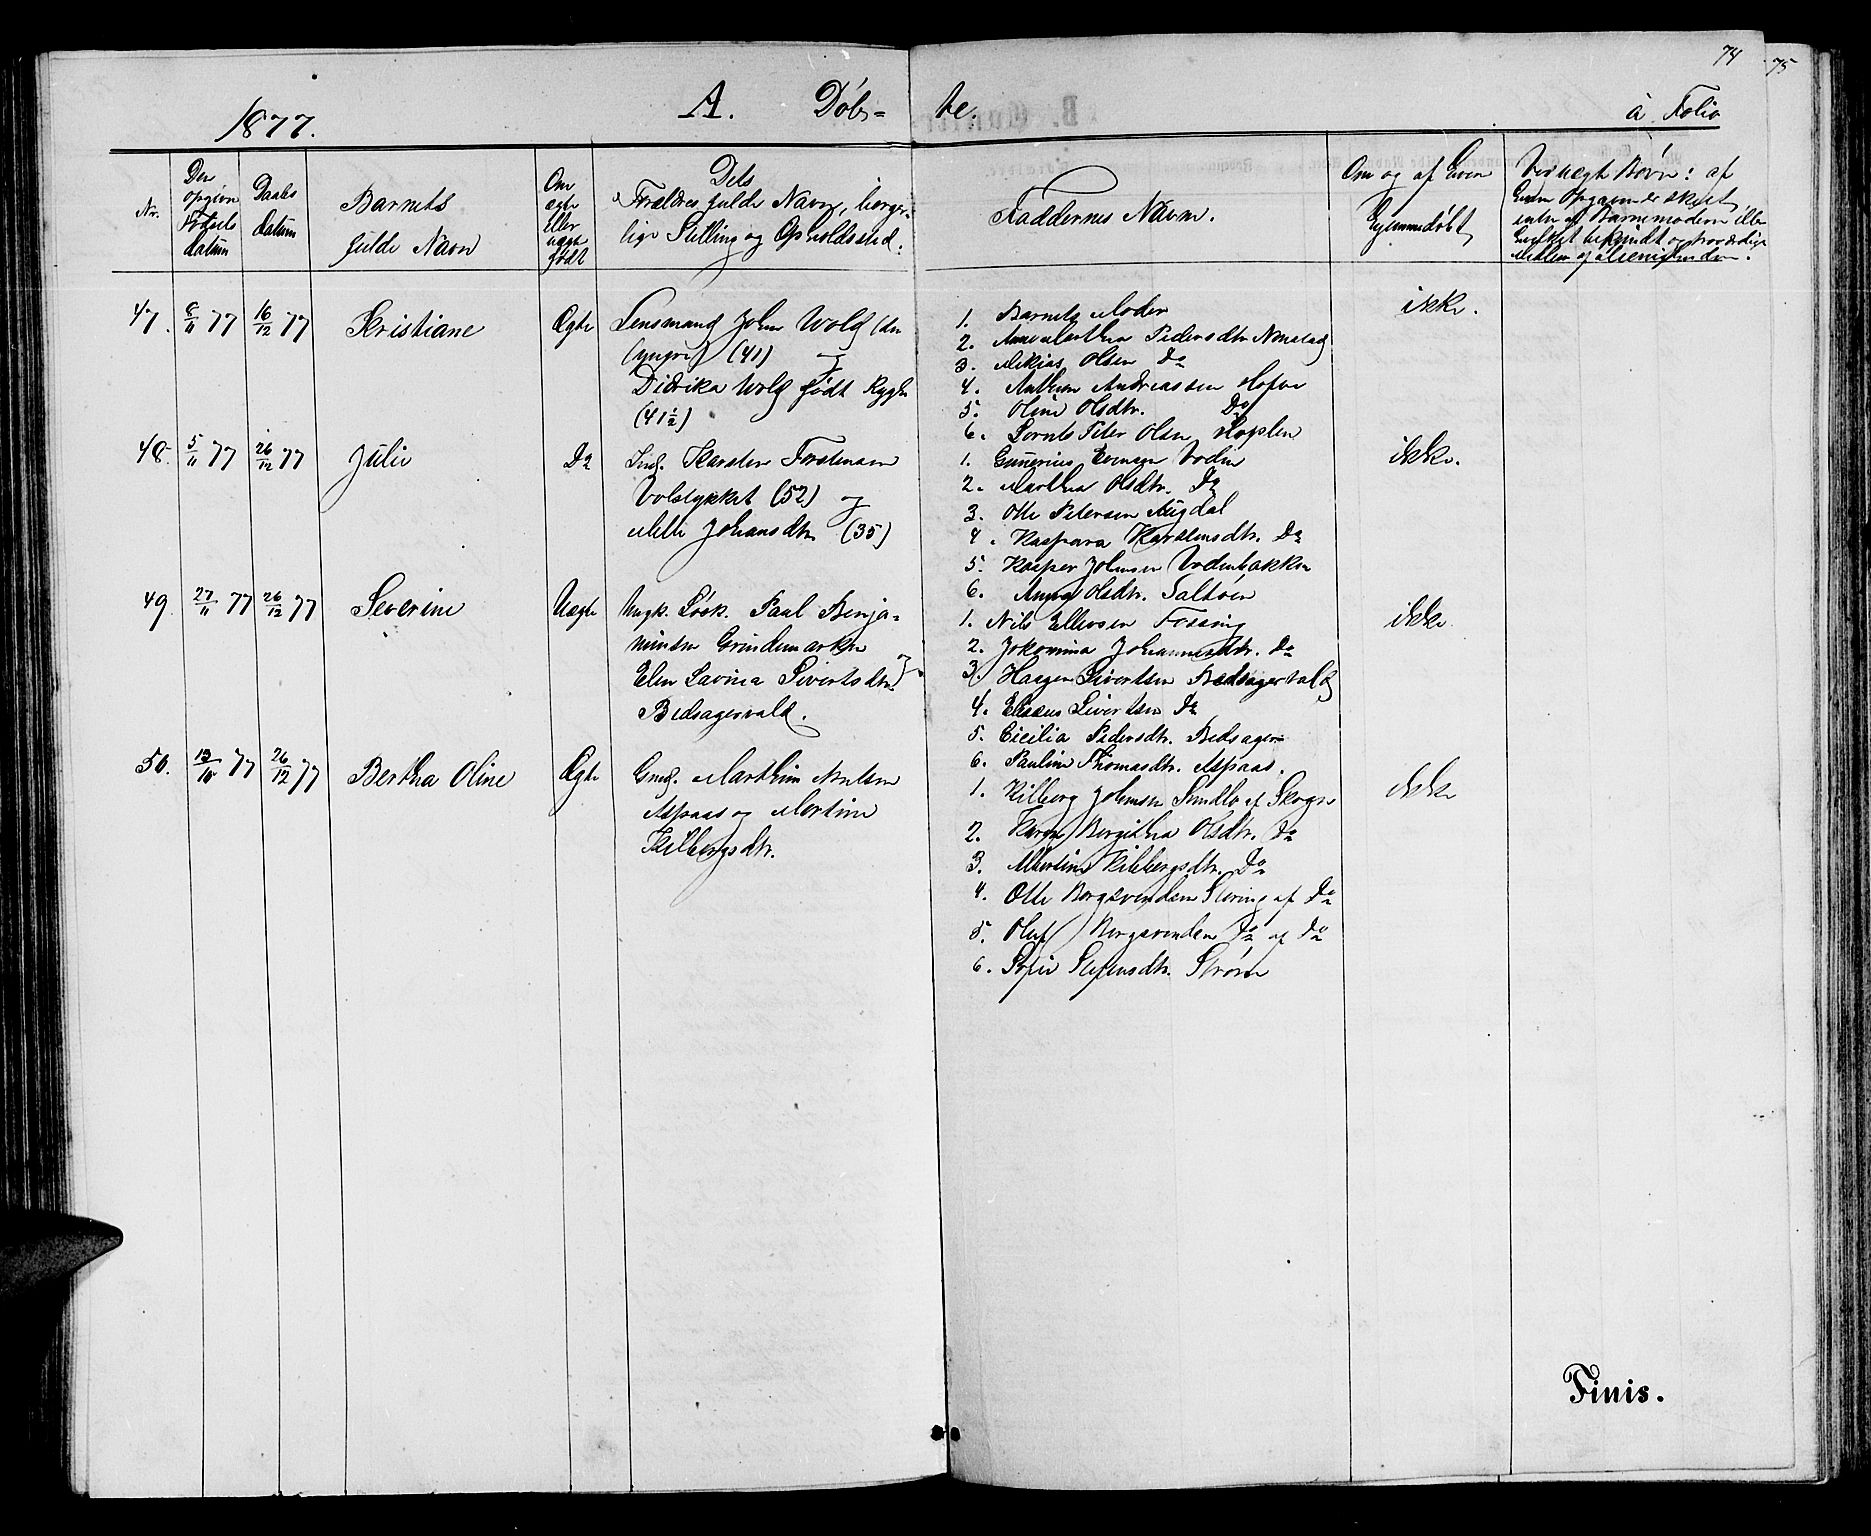 74
75
1877.
A. Døb- te.
à Folio
Nr.
Den opgivne Fødsels datum
Daabs datum
Barnets fulde Navn
Om ægte eller uægte født
Dets Forældres fulde Navn, borgerlige Stilling og Opholdssted.
Faddernes Navne.
Om og af hvem Hjemmedøbt
Ved uægte Børn: af
47. 8/11 77 16/12 77 Kristiane Ægte Lensmand John Wold (den
yngre) (41) og
Didrika Wold født Rygh
(41½)
1. Barnets Moder
2. Anne Martha Pedersdtr. Nonstad
3. Mekias Olsen Do
4. Anthon Andreassen
5. Oline Olsdtr. Do
6. Lornts Peter Olsen Hoplen
ikke.
48. 5/11 77 26/12 77 Julie Do Indr. Karsten Torstensen
Volstykket (52) og
Mette Johansdtr. (35)
1. Gunerius Evensen Voden
2. Martha Olsdtr. Do
3. Otte Petersen Augdal
4. Kaspara Karstensdtr. Do
5. Kasper Johnsen Vodenbakken
6. Anna Olsdtr. Saltøen
ikke.
49. 27/11 77 26/12 77 Severine Uægte Ungk. Paul Benja-
minsen Grindemarken og
Elen Lavina Sivertsdtr.
Bedsagervald.
1. Nils Ellevsen Fossing
2. Jokomina Johannesdtr. Do
3. Haagen Sivertsen Bedsagervald
4. Eliseus Sivertsen Do
5. Cicilia Pedersdtr. Bedsager
6. Pauline Thomasdtr. Aspaas.
ikke
50. 13/10 77 26/12 77 Bertha Oline Ægte Gmd. Marthin Nilsen
Aspaas og Martine
Kilbergsdtr.
1. Kilberg Johnsen Sundlo af Skogn
2. Karen Bergitha Olsdtr. Do
3. Albertine Kilbergsdtr. Do
4. Otte Bergsvendsen af Do
5. Oluf Bergsvendsen Do af Do
6. Sofie Steffensdtr. Strøm
ikke
Finis.